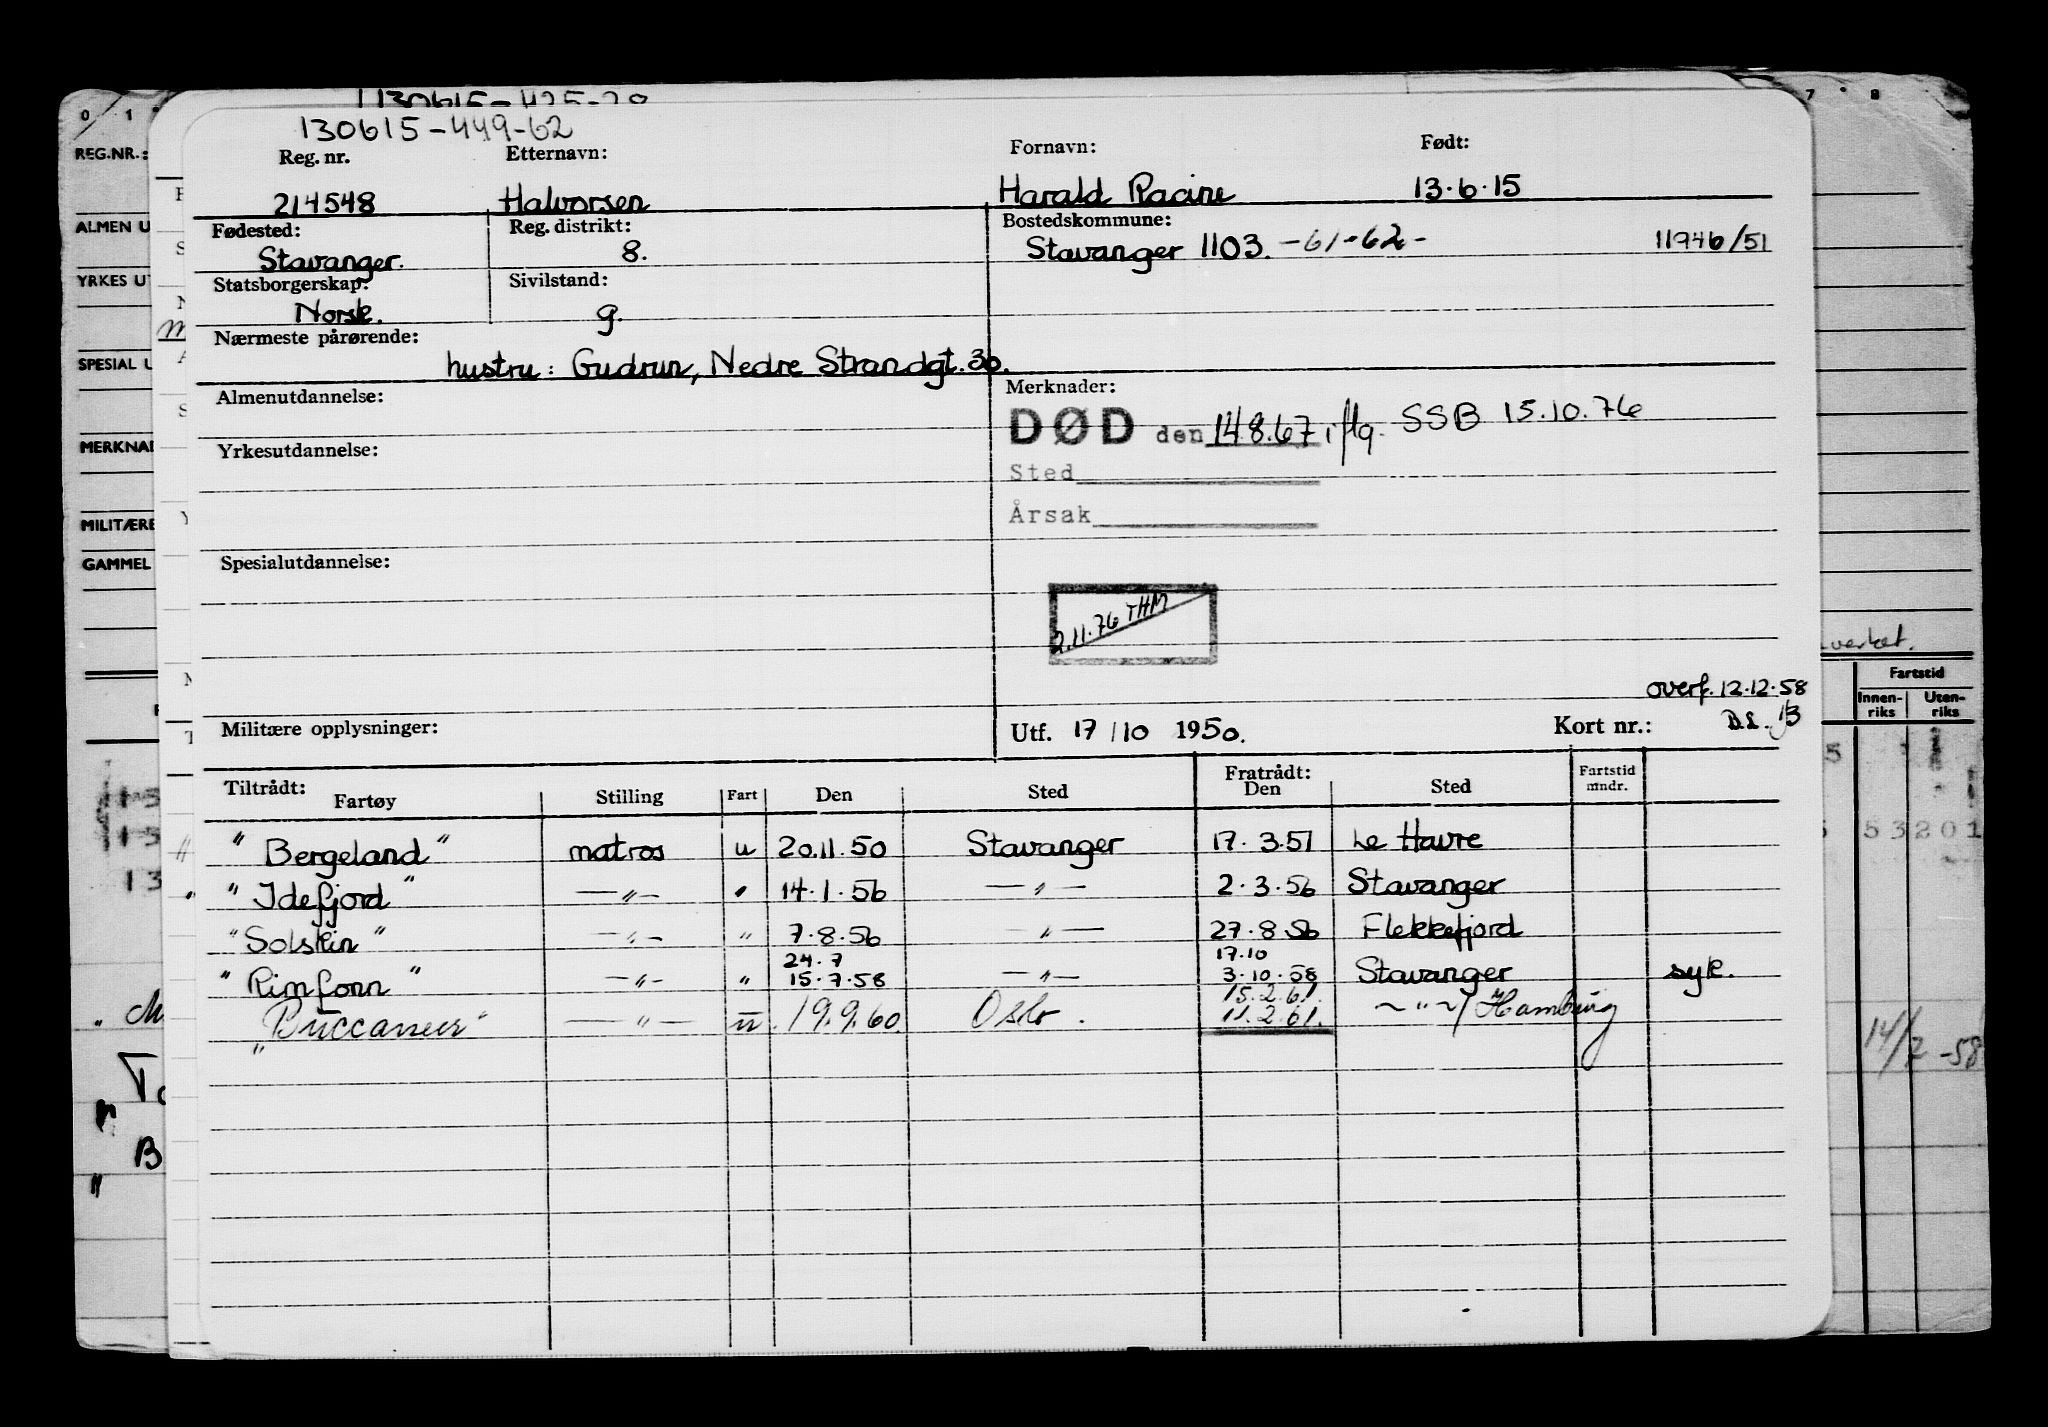 130615-449-62
Reg. nr. Etternavn: Fornavn: Født:
214548 Halvorsen Harald Racine 13.6.15
Fødested: Reg. distrikt: Bostedskommune:
Stavanger. 8. Stavanger 1103. -61-62- 11946/51
Statsborgerskap: Sivilstand:
Norsk. g.
Nærmeste pårørende:
hustru: Gudrun, Nedre Strandgt. 30.
Almenutdannelse: Merknader:
DØD den 14.8.67 iflg. SSB 15.10.76
Yrkesutdannelse:
Sted
Årsak
Spesialutdannelse:
2.11.76 THM
overf. 12.12.58
Militære opplysninger: Utf. 17/10 1950. Kort nr.: B.L. 13
Tiltrådt: Fratrådt:
Fartøy Stilling Fart Den Sted Den Sted Fartstid mndr.
"Bergeland" matros u 20.11.50 Stavanger 17.3.51 Le Havre
"Idefjord" —"— " 14.1.56 —"— 2.3.56 Stavanger
"Solskin" —"— " 7.8.56 —"— 27.8.56 Flekkefjord
24.7 17.10
"Rimfonn" —"— " 15.7.58 —"— 3.10.58 Stavanger syk.
15.2.61.
"Buccaneer" —"— u. 19.9.60. Oslo. 11.2.61. ~"~/Hamburg
REG.NR.:
ALMEN U
YRKES UT
SPESIAL U
MERKNAD
MILITÆRE
GAMMEL
Fartstid
Innen-riks Uten-riks
53 201
14/2-58